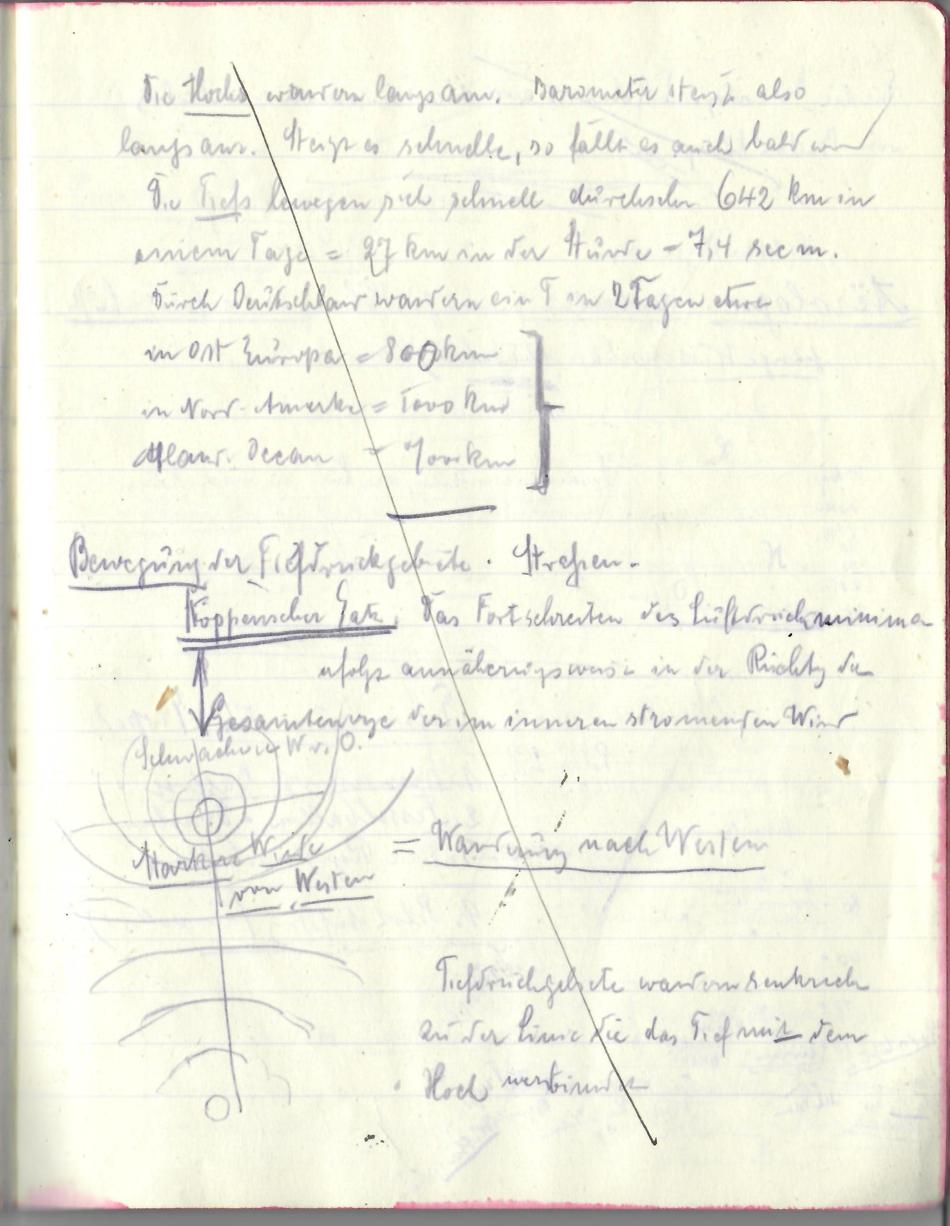 Die Hochs wandern langsam. Barometer steigt also
langsam. Steigt es schnelle, so fällt es auch bald
Die Tiefs bewegen sich schnell durchschn 642 km in
einem Tage = 27 km in der Stunde = 7,4 sec m.
Durch Deutschland wandern ein T in 2 Tagen etwa
in Ost Europa = 800 km
in Nord-Amerika = 1000 km
Atlant. Ocean = 700 km
Bewegung der Tiefdruckgebiete. Straßen.
Köppenscher Satz. Das Fortschreiten des Luftdruckminima
erfolgt annäherungsweise in der Richtg der
Gesamtenergie der im inneren stromenden Wind
Schwächere W. v. O.
Starkere Winde
von Westen
= Wanderung nach Westen
Tiefdruckgebiete wandern senkrech
zu der Linie die das Tief mit dem
Hoch verbindet